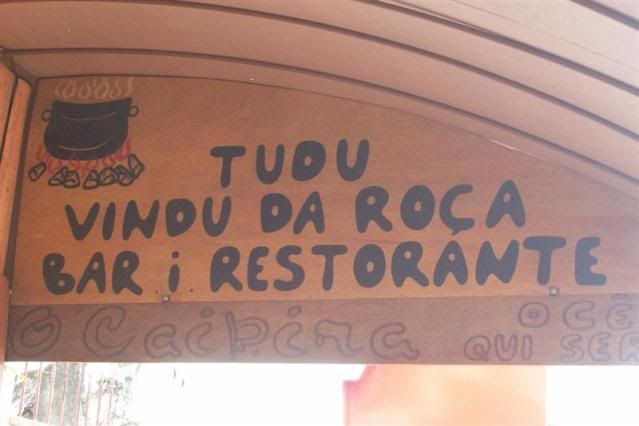 TUDU
VINDU DA ROÇA
BAR i RESTORÂNTE
O Caipira
OCÊ
QUI SER